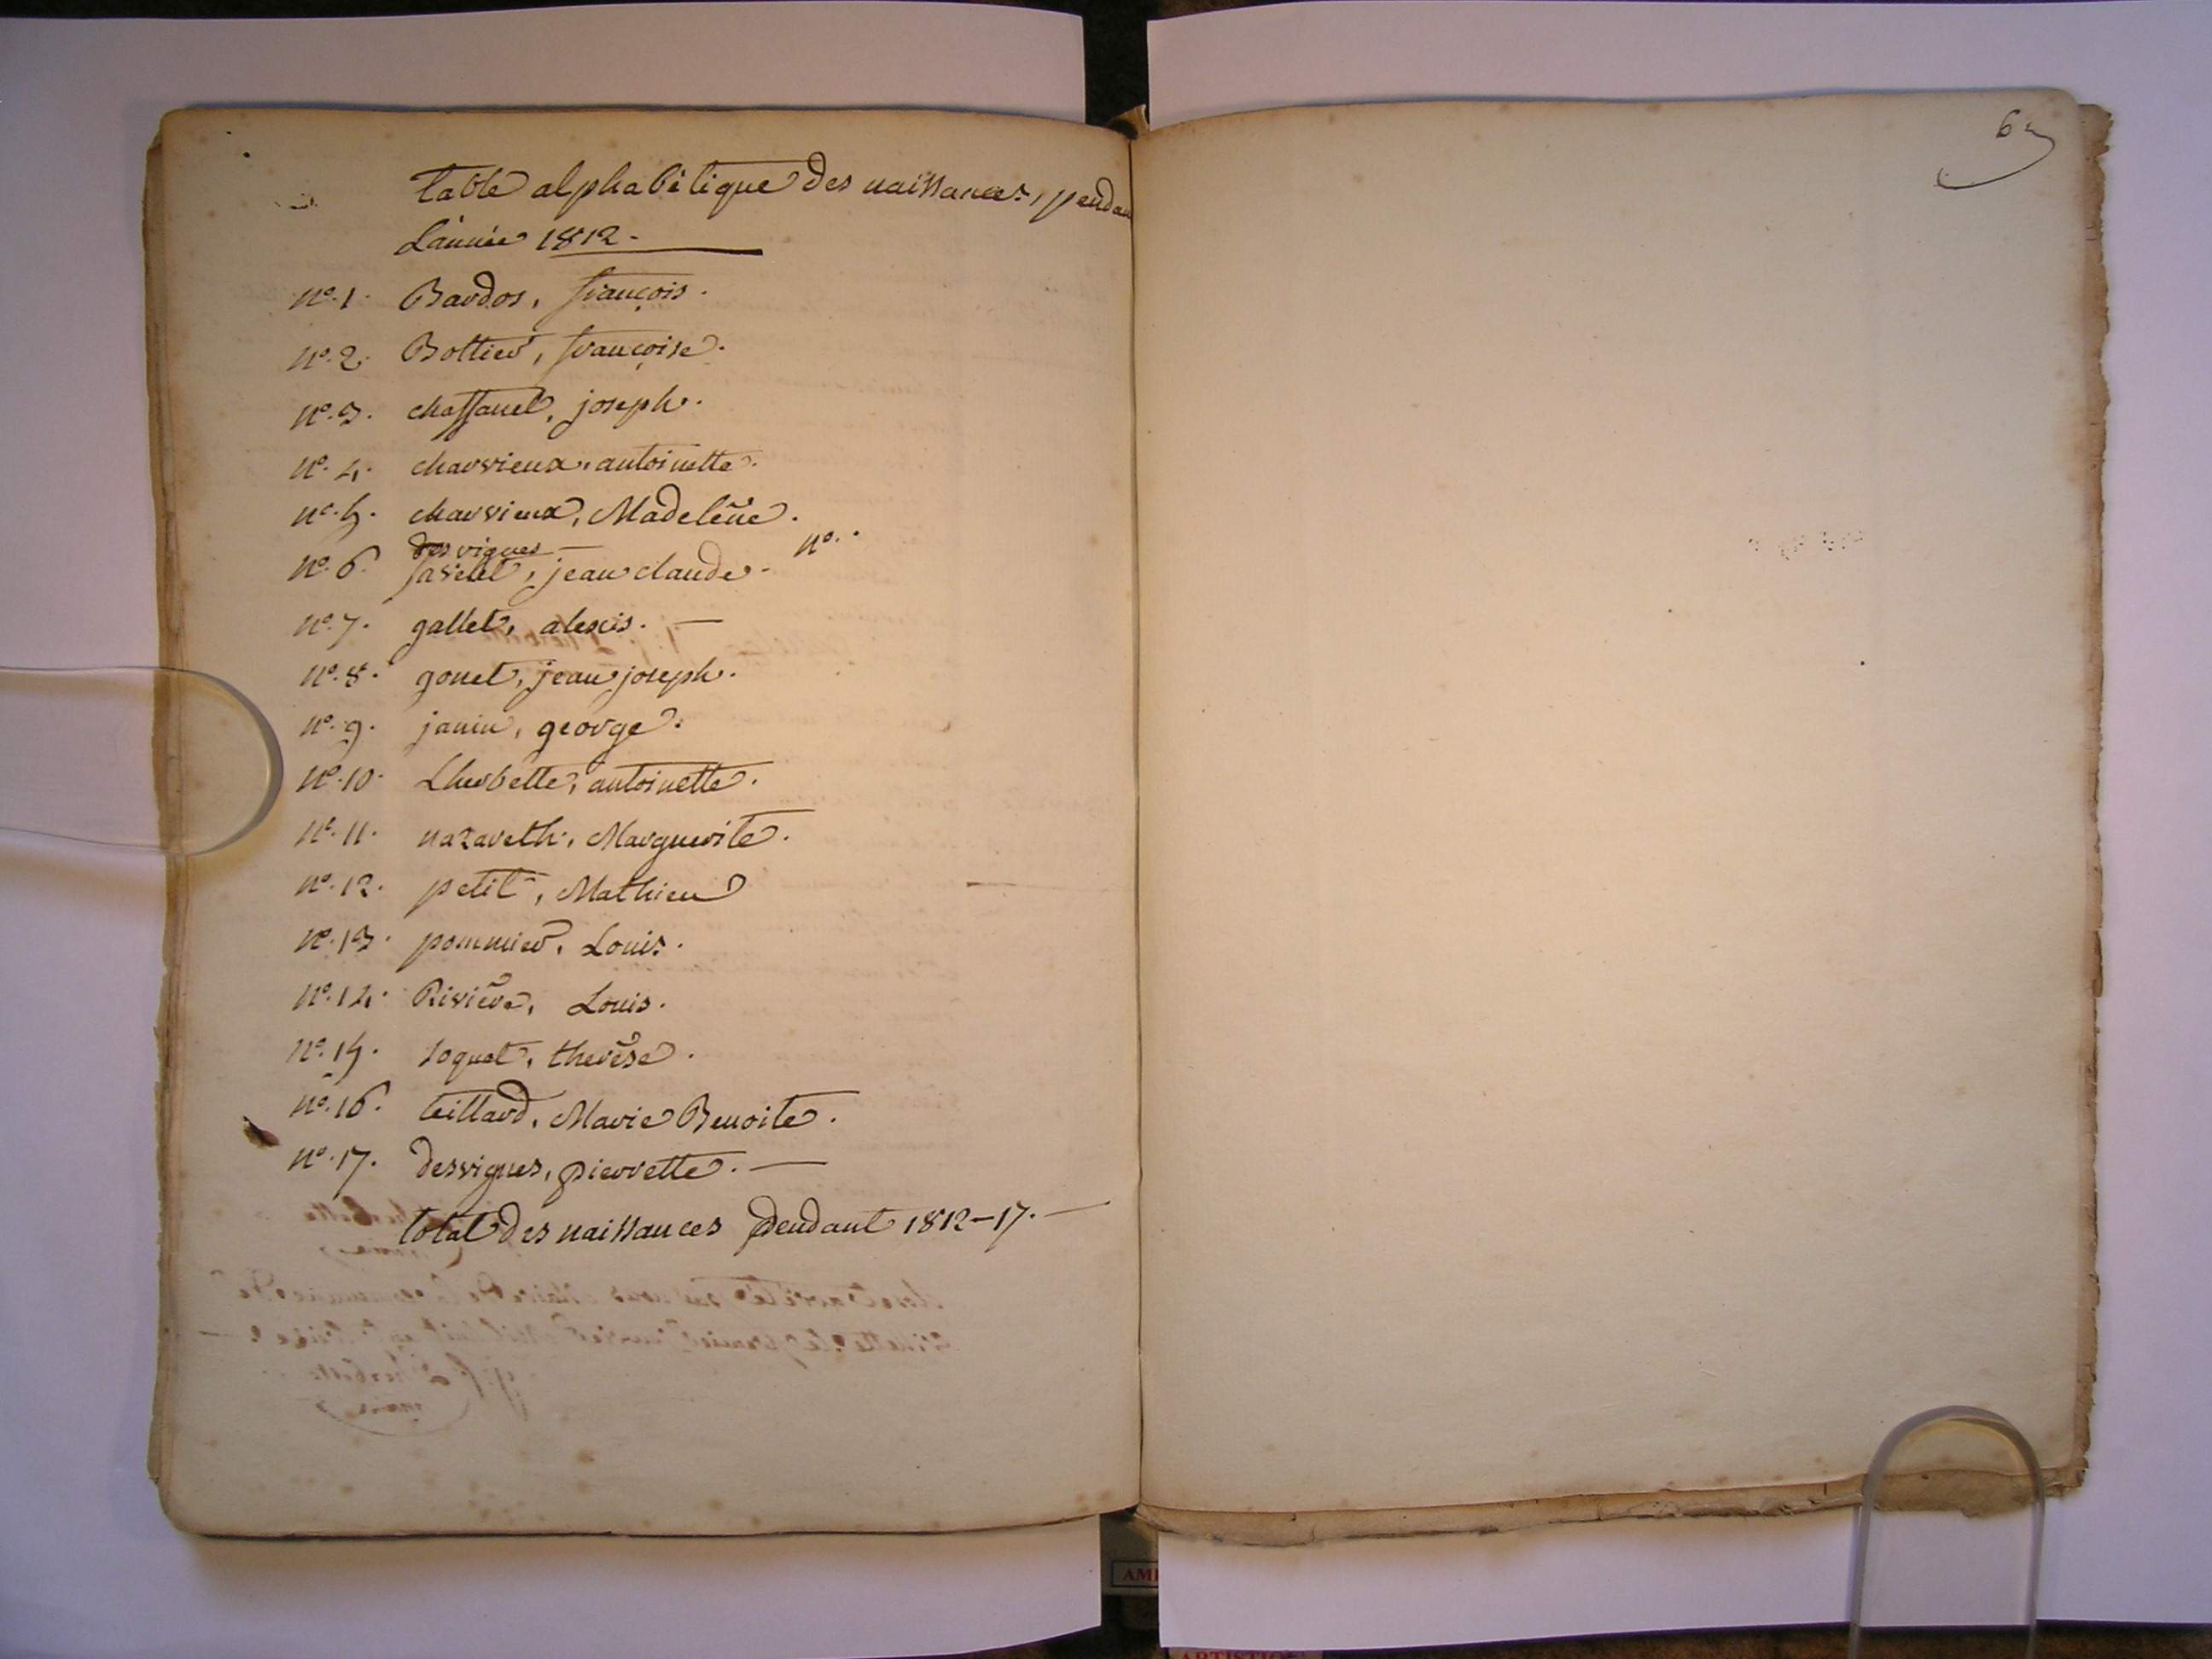 table alphabétique des naissances, pendan
L'année 1812.
n.º 1. Bardos, françois.
n.º 2. Bottier, françoise.
n.º 3. chassanel, joseph.
n.º 4. charvieux, antoinette.
n.º 5. charvieux, Madeleine.
desvignes
n.º 6. favelet, jean claude. n.º.
n.º 7. gallet, alexis.
n.º 8. gonet, jean joseph.
n.º 9. janin, george.
n.º 10. Lherbette, antoinette.
n.º 11. nazareth, Marguerite.
n.º 12. petit, Mathieu
n.º 13. pommier, Louis.
n.º 14. Rivière, Louis.
n.º 15. soquet, therèse.
n.º 16. teillard, Marie Benoite.
n.º 17. desvignes, pierrette.
total des naissances pendant 1812 – 17.